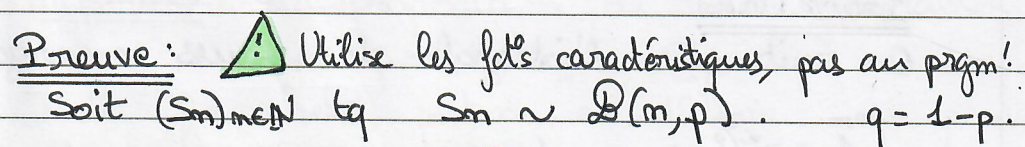 Preuve : ! Utilise les fcts caractéristiques, pas au prgm !
Soit (Sn)n∈ℕ tq Sn ~ B(n,p). q = 1-p.